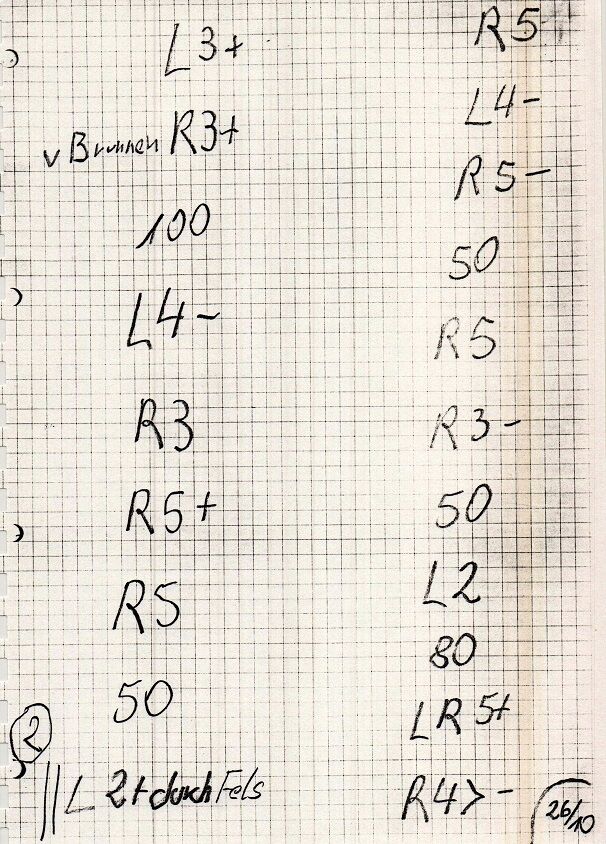 L 3+
v Brunnen R3+
100
L4-
R3
R5+
R5
50
2
L 2+ durch Fels
R5-
L4-
R5-
50
R5
R3-
50
L2
80
LR 5+
R4>-
26/10